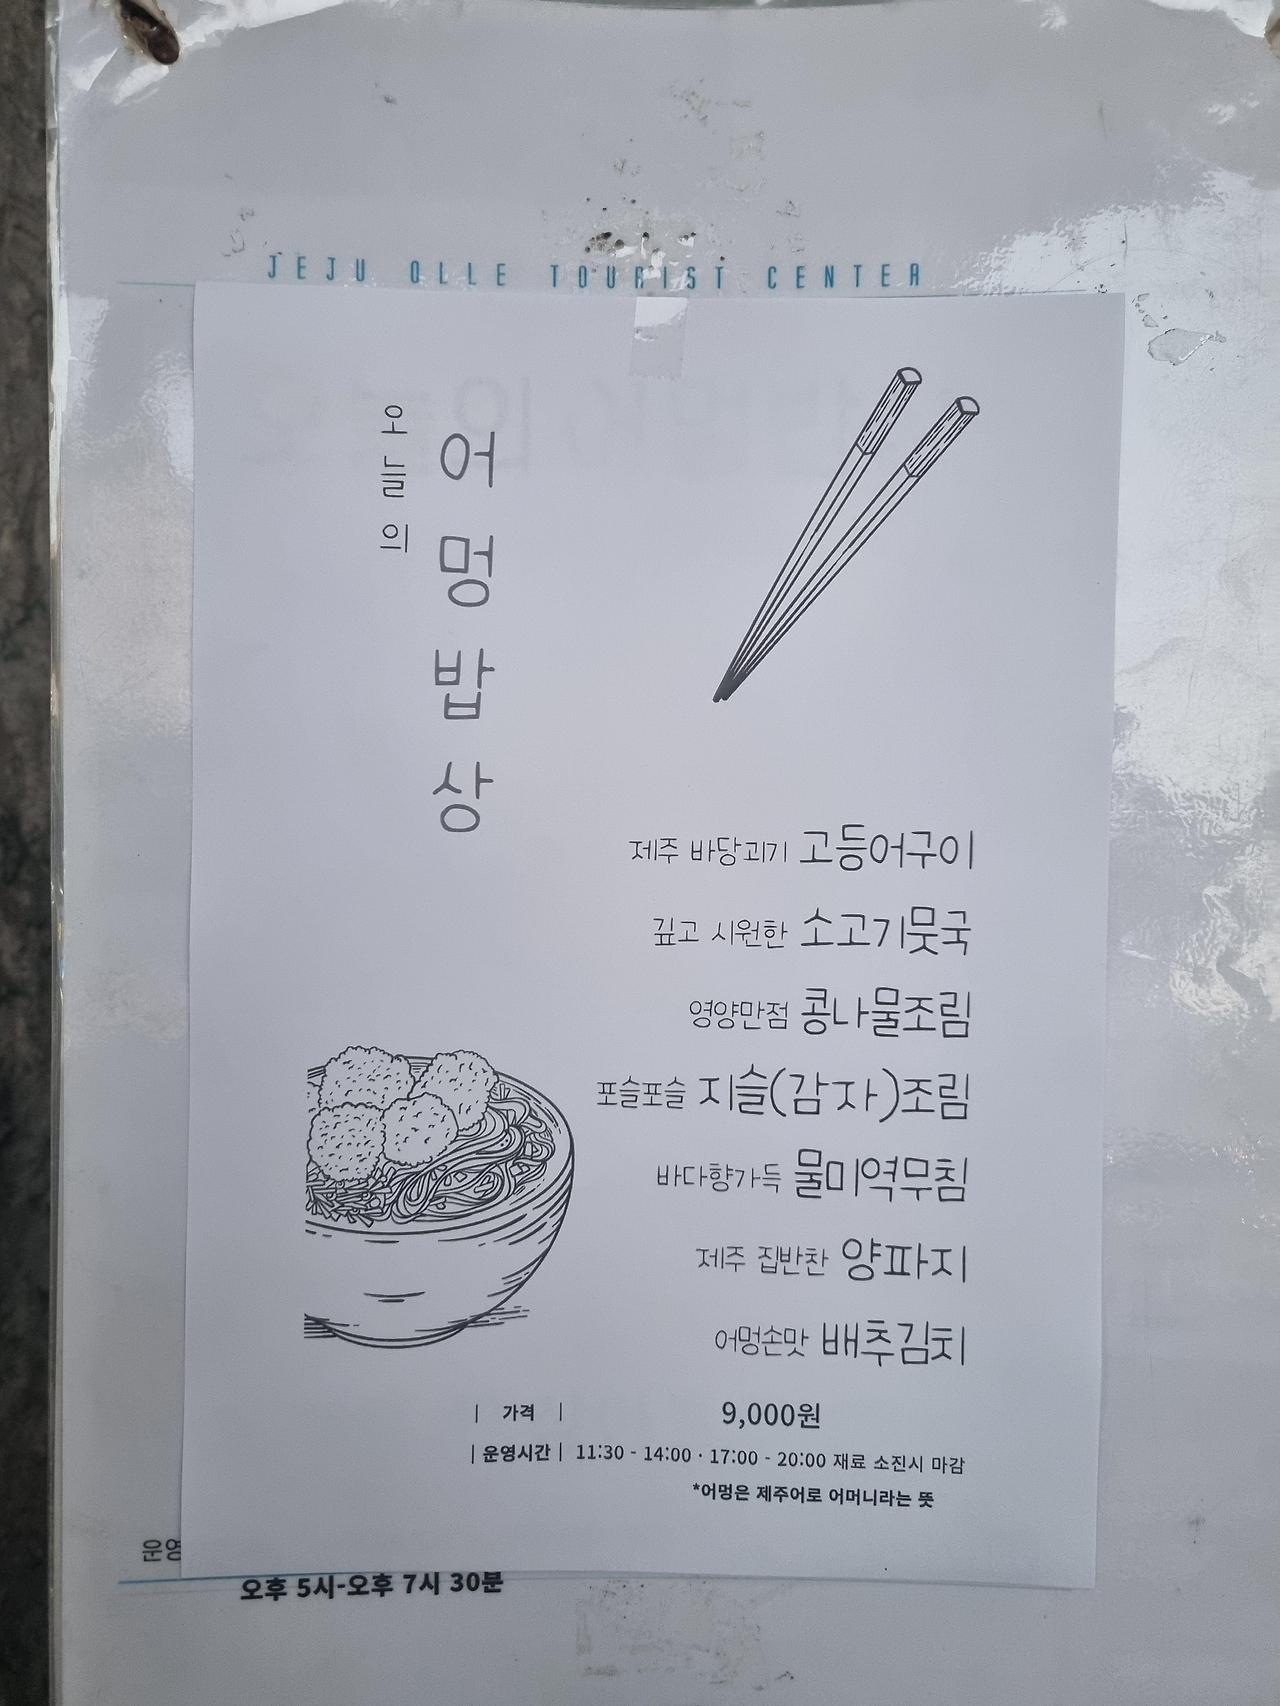 JEJU OLLE TOURIST CENTER
오늘의
어멍밥상
제주 바당괴기 고등어구이
깊고 시원한 소고기뭇국
영양만점 콩나물조림
포슬포슬 지슬(감자)조림
바다향가득 물미역무침
제주 집반찬 양파지
어멍손맛 배추김치
| 가격 | 9,000원
| 운영시간 | 11:30 - 14:00 · 17:00 - 20:00 재료 소진시 마감
*어멍은 제주어로 어머니라는 뜻
운영
오후 5시-오후 7시 30분